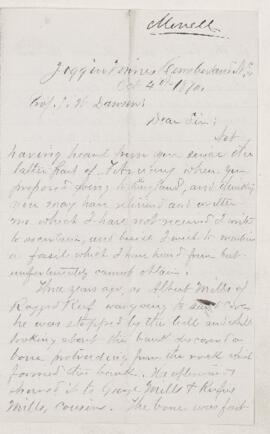 Merrell
Joggin Mines Cumberland N.S.
Oct 4th 1870.
Prof. J. W. Dawson;
Dear Sir;
Not
having heard from you since the
latter part of February when you
proposed going to England, and thinking
you may have returned and written
me which I have not received I write
to ascertain, and beside I wish to mention
a fossil which I have heard from but
unfortunately cannot obtain.
Three years ago, as Albert Mills of
Ragged Reef was going to
he was stopped by the tide and while
looking about the bank discovered a
bone protruding from the rock which
formed the bank. He afterwards
showed it to George Mills & Rufus
Mills, cousins. The bone was fast